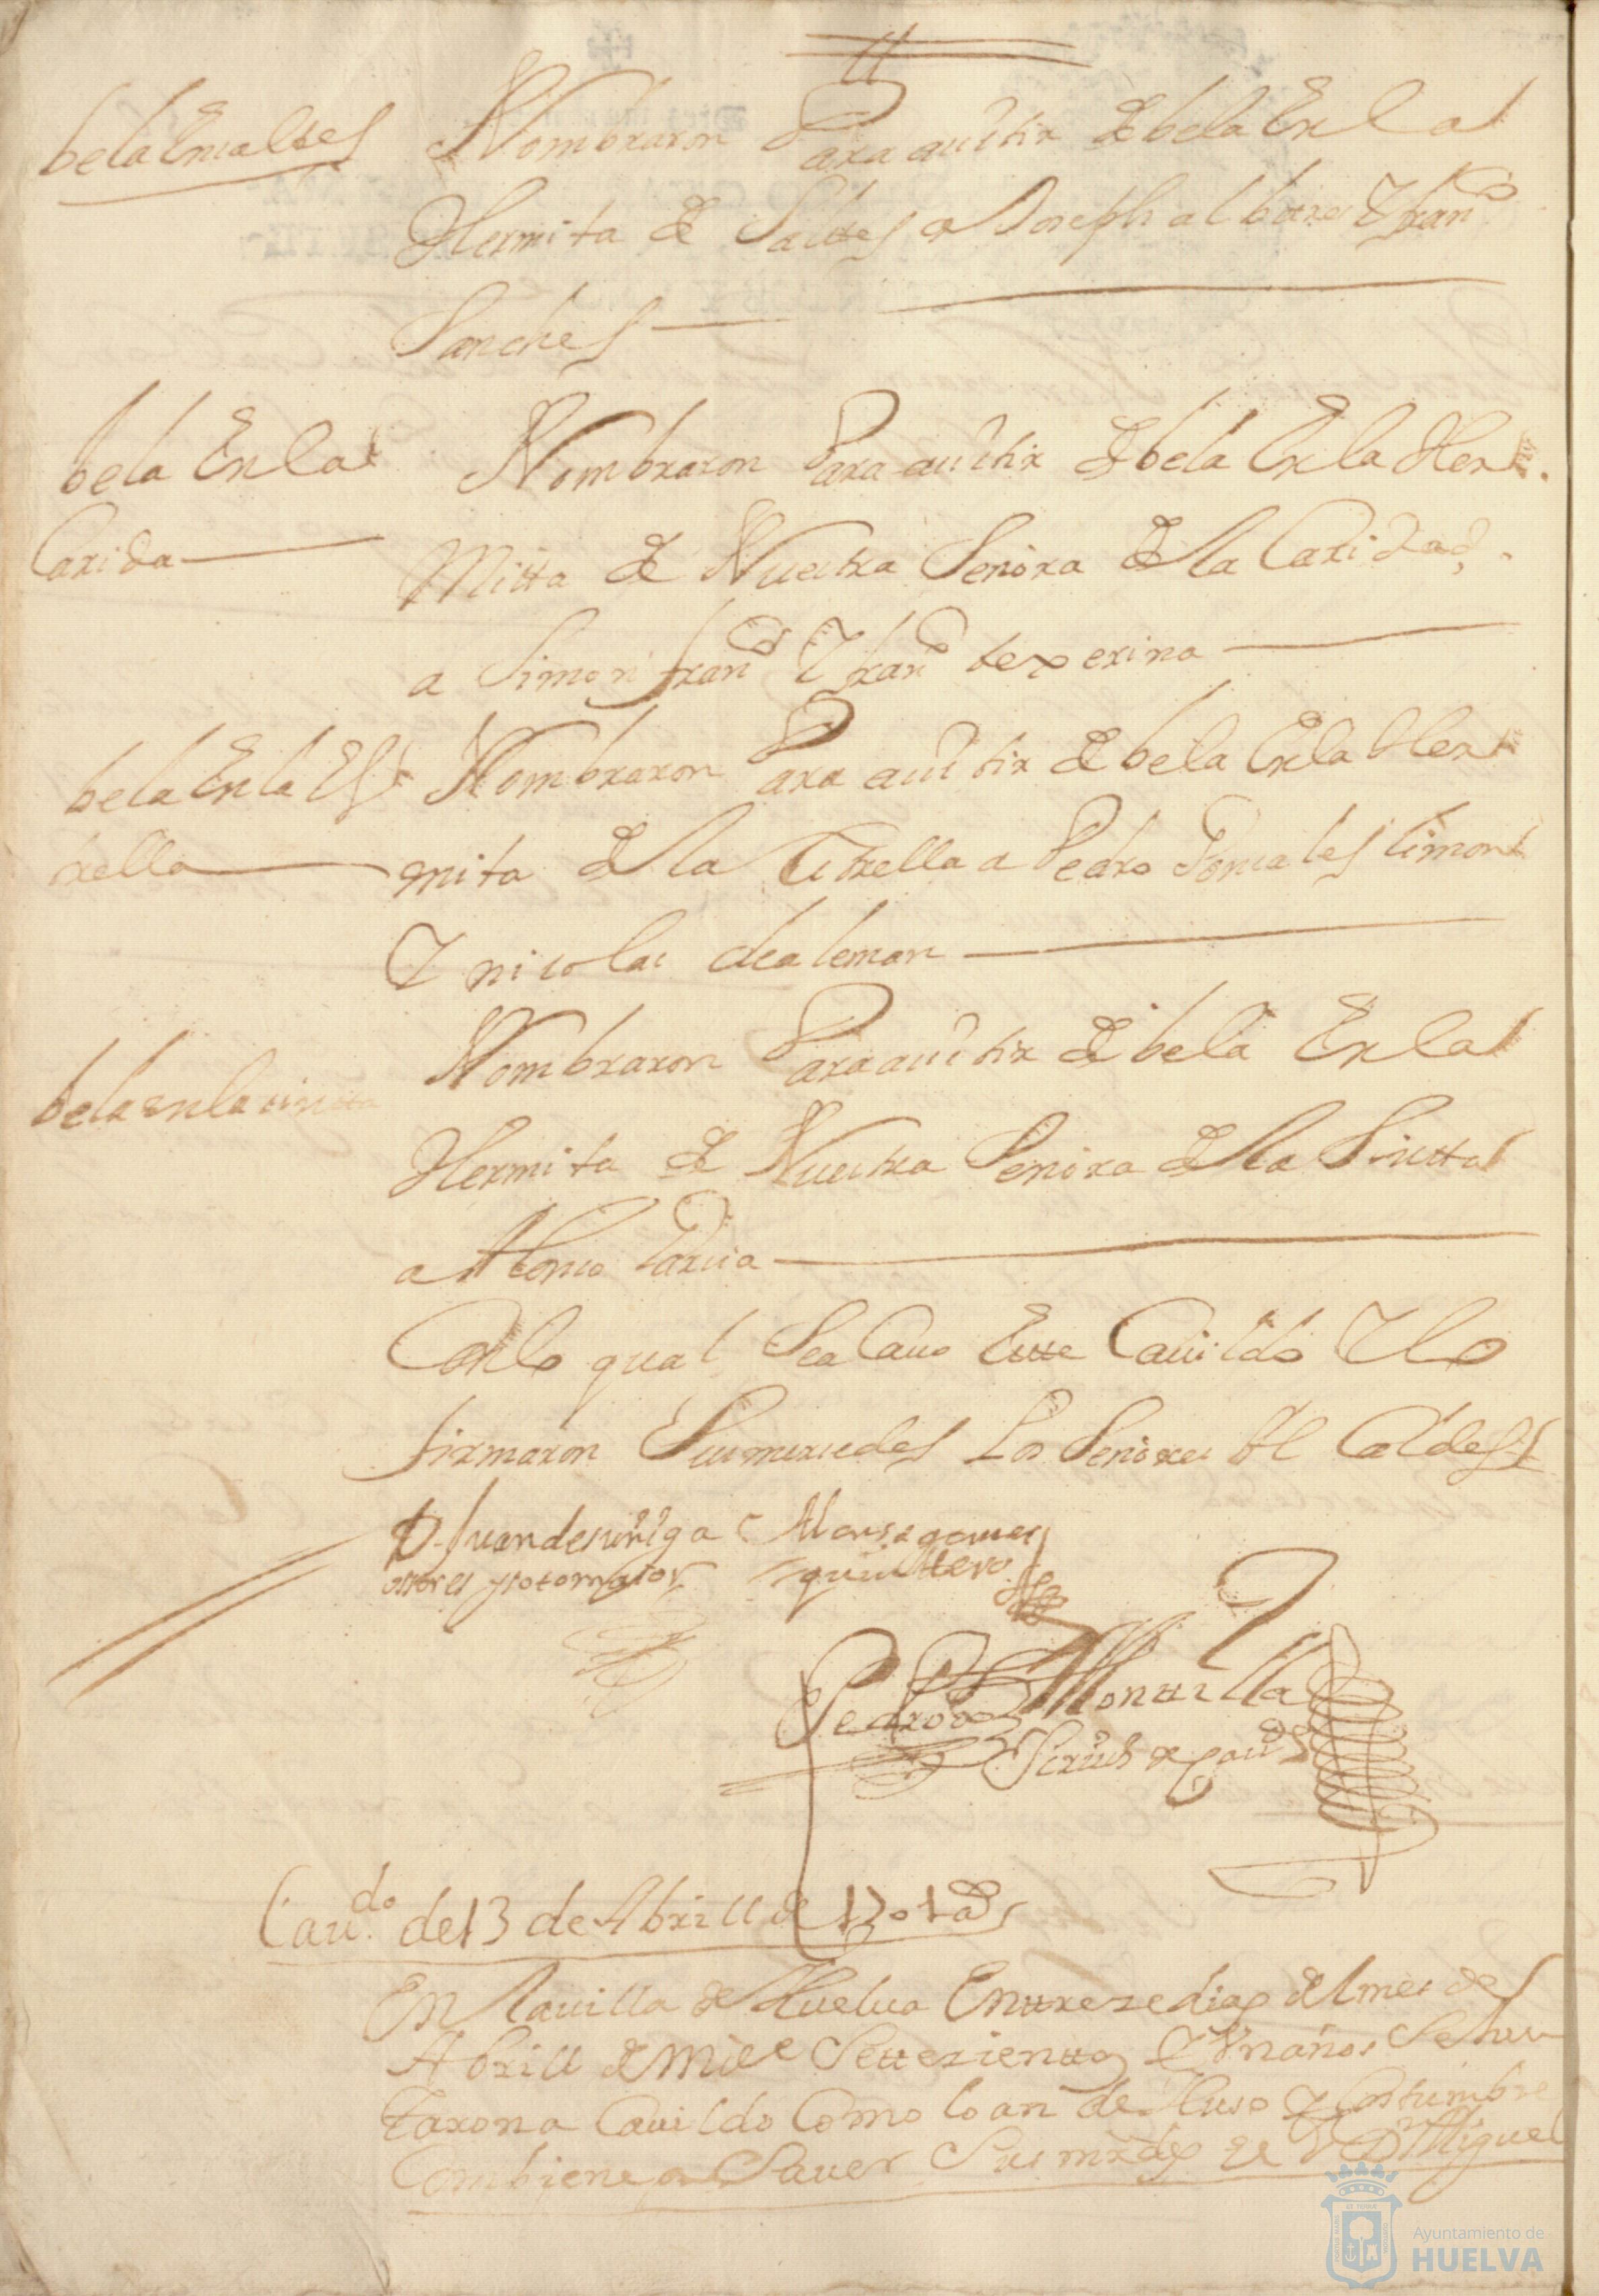 bela En saltes
Nombraron Para asistir de bela En la
Hermita de Saltes a Joseph albares Y fran.co
Sanches
bela En la
Carida
Nombraron Para asistir de bela En la Her
mitta de Nuestra Señora de la Caridad,
a Simon fran.co Y fran.co
bela En la Es
trella
Nombraron Para asistir de bela En la Her
mita de la Estrella a Pedro Gonsales limon
Y nicolas de aleman
bela en la sinta
Nombraron Para asistir de bela En la
Hermita de Nuestra Señora de la Sintta
a Alonso Garcia
Con lo qual Se a Cauo Este Cauildo Y lo
firmaron Sus mersedes Los Señores Al Caldes
D. Juan de suñiga
Alonso gomes
quinttero
Pedro de Montilla
Scriu.o de Cau.do
Cau.do de 13 de Abrill de 1701 a.s
En la uilla de Huelua En ttreze dias del mes de
Abrill de mill Settezienttos Y Vn años Se Jun
taron a Cauildo Como lo an de Huso Y Costumbre
Combiene a Sauer Sus mrdes el S D Miguel
Ayuntamiento de
HUELVA